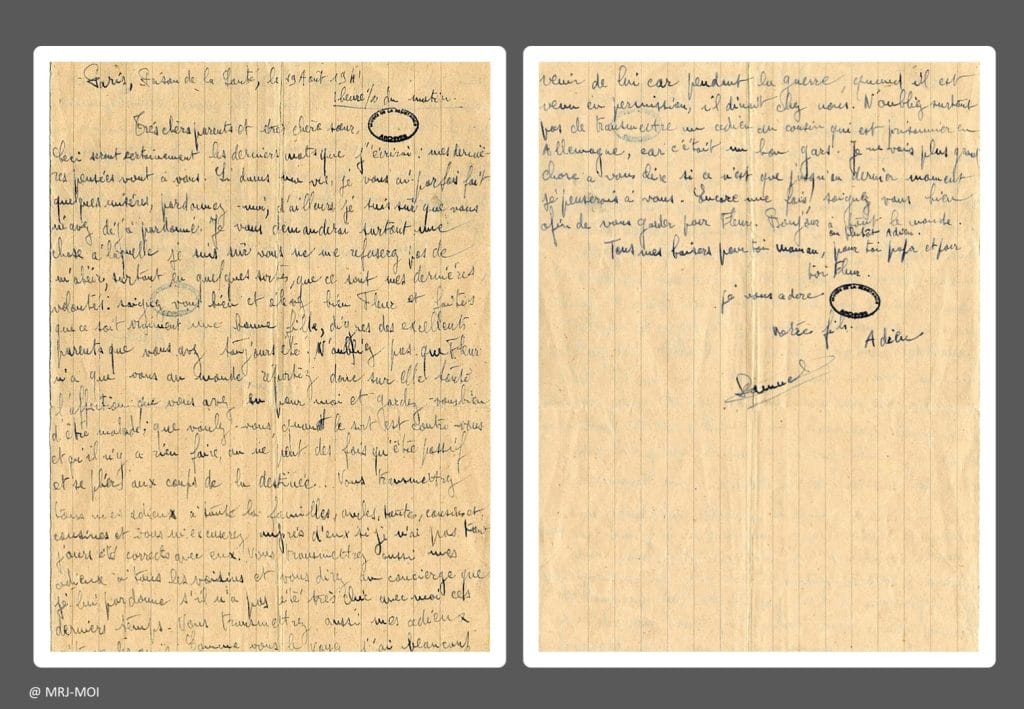 Paris, Prison de la Santé, le 19 Août 1941
1 heure 1/2 du matin.
Très chers parents et très chère sœur,
Ceci seront certainement les derniers mots que j'écrirai : mes derniè-
res pensées vont à vous. Si dans ma vie, je vous ai parfois fait
quelques misères, pardonnez-moi, d'ailleurs je suis sûr que vous
m'avez déjà pardonné. Je vous demanderai surtout une
chose à laquelle je suis sûr vous ne me refuserez pas de
m'obéir, surtout en quelques sortes, que ce sont mes dernières
volontés : soignez vous bien et élevez bien Fleur et faites
que ce soit vraiment une bonne fille, dignes des excellents
parents que vous avez toujours été. N'oubliez pas que Fleur
n'a que vous au monde, reportez donc sur elle toute
l'affection que vous avez eu pour moi et gardez-vous bien
d'être malade ; que voulez-vous quand le sort est contre vous
et qu'il n'y a rien faire, on ne peut des fois qu'être passif
et se plier aux coups de la destinée... Vous transmettrez
tous mes adieux à toute la familles, oncles, tantes, cousins et
cousines et vous m'excuserez auprès d'eux si je n'ai pas tou-
jours été corrects avec eux. Vous transmettrez aussi mes
adieux à tous les voisins et vous direz au concierge que
je lui pardonne s'il n'a pas été très chic avec moi ces
derniers temps. Vous transmettrez aussi mes adieux
Comme vous le j'ai beaucoup
venir de lui car pendant la guerre, quand il est
venu en permission, il dinait chez nous. N'oubliez surtout
pas de transmettre un adieu au cousin qui est prisonnier en
Allemagne, car c'était un bon gars. Je ne vois plus grand
chose à vous dire si ce n'est que jusqu'au dernier moment
je penserais à vous. Encore une fois, soignez vous bien
afin de vous garder pour Fleur. Bonjour à tout le monde.
ou plutôt Adieu.
Tous mes baisers pour toi maman, pour toi papa et pour
toi Fleur.
je vous adore
votre fils.
Adieu
Samuel
@ MRJ-MOI